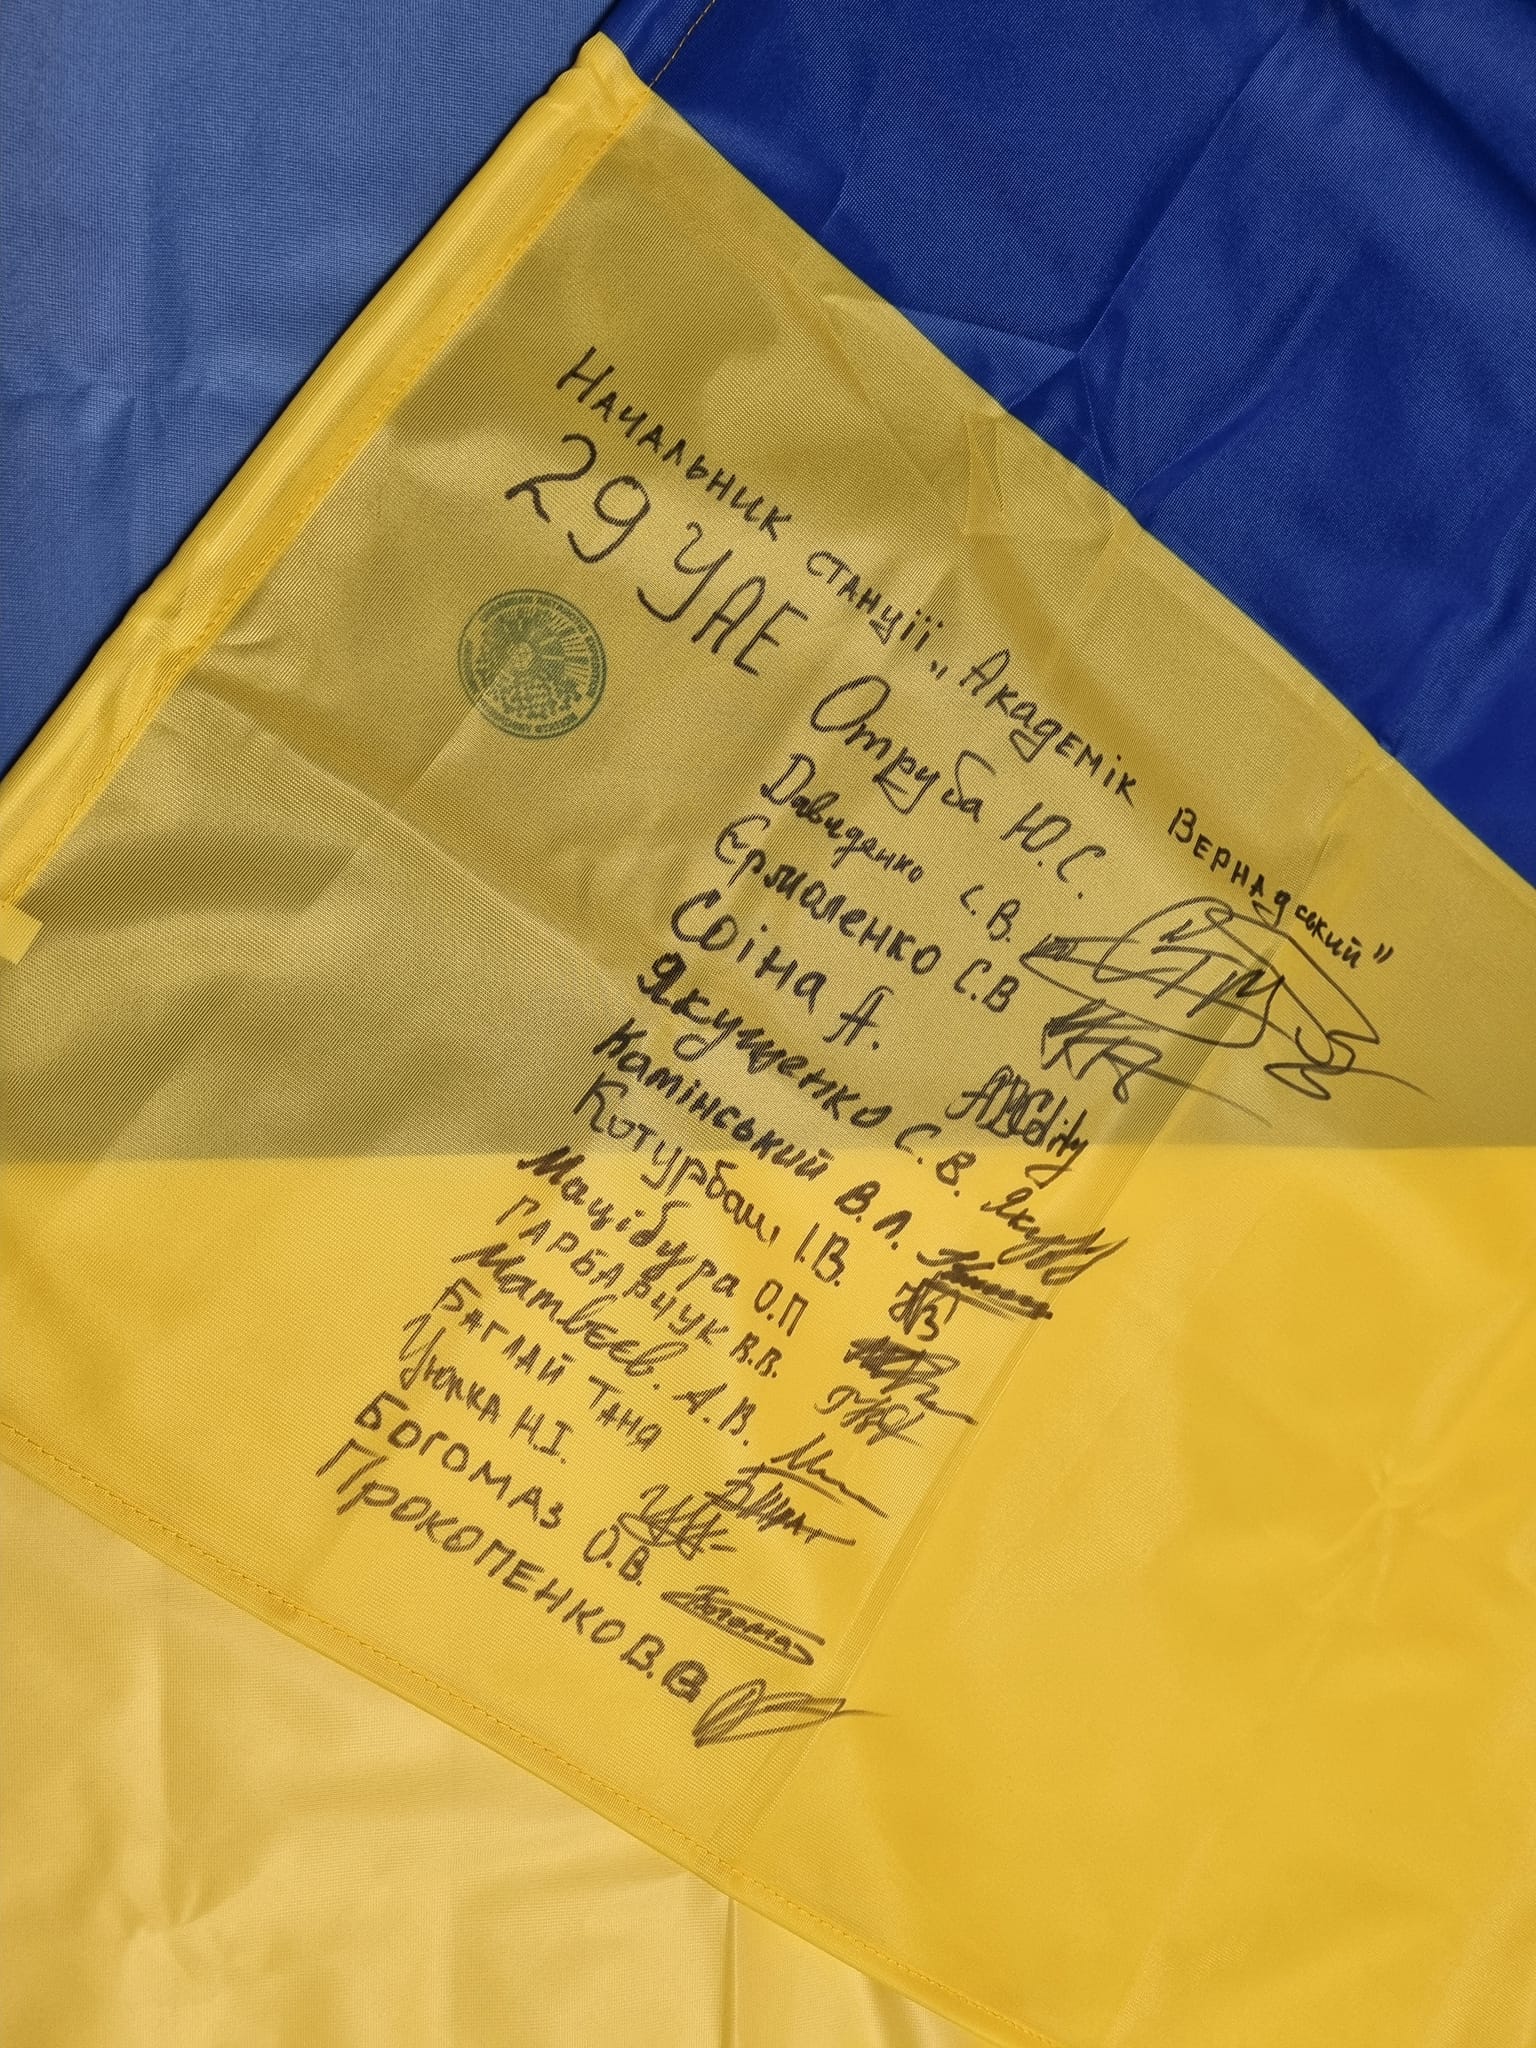 Начальник станції „Академік Вернадський”
29 УАЕ
Отруба Ю.С.
Давиденко С.В.
Єрмоленко С.В
Соіна А.
Якущенко С.В.
Камінський В.Л.
Котурбаш І.В.
Мацібура О.П
ГАРБАРЧУК В.В.
Матвєєв. А.В.
БАГЛАЙ ТАНЯ
Цюпка Н.І.
БОГОМАЗ О.В.
ПРОКОПЕНКО В.В